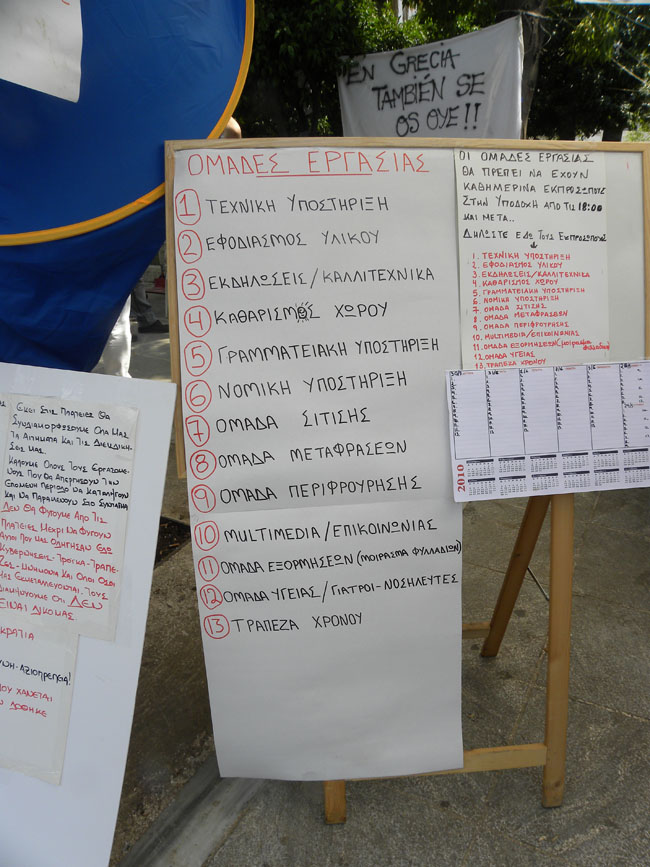 EN GRECIA
TAMBIÉN SE
OS OYE!!
ΟΜΑΔΕΣ ΕΡΓΑΣΙΑΣ
1 ΤΕΧΝΙΚΗ ΥΠΟΣΤΗΡΙΞΗ
2 ΕΦΟΔΙΑΣΜΟΣ ΥΛΙΚΟΥ
3 ΕΚΔΗΛΩΣΕΙΣ/ΚΑΛΛΙΤΕΧΝΙΚΑ
4 ΚΑΘΑΡΙΣΜΟΣ ΧΩΡΟΥ
5 ΓΡΑΜΜΑΤΕΙΑΚΗ ΥΠΟΣΤΗΡΙΞΗ
6 ΝΟΜΙΚΗ ΥΠΟΣΤΗΡΙΞΗ
7 ΟΜΑΔΑ ΣΙΤΙΣΗΣ
8 ΟΜΑΔΑ ΜΕΤΑΦΡΑΣΕΩΝ
9 ΟΜΑΔΑ ΠΕΡΙΦΡΟΥΡΗΣΗΣ
10 MULTIMEDIA/ΕΠΙΚΟΙΝΩΝΙΑΣ
11 ΟΜΑΔΑ ΕΞΟΡΜΗΣΕΩΝ (ΜΟΙΡΑΣΜΑ ΦΥΛΛΑΔΙΩΝ)
12 ΟΜΑΔΑ ΥΓΕΙΑΣ/ΓΙΑΤΡΟΙ-ΝΟΣΗΛΕΥΤΕΣ
13 ΤΡΑΠΕΖΑ ΧΡΟΝΟΥ
ΟΙ ΟΜΑΔΕΣ ΕΡΓΑΣΙΑΣ
ΘΑ ΠΡΕΠΕΙ ΝΑ ΕΧΟΥΝ
ΚΑΘΗΜΕΡΙΝΑ ΕΚΠΡΟΣΩΠΟΥΣ
ΣΤΗΝ ΥΠΟΔΟΧΗ ΑΠΟ ΤΙΣ 18:00
ΚΑΙ ΜΕΤΑ..
ΔΗΛΩΣΤΕ ΕΔΩ ΤΟΥΣ ΕΚΠΡΟΣΩΠΟΥΣ
1. ΤΕΧΝΙΚΗ ΥΠΟΣΤΗΡΙΞΗ
2. ΕΦΟΔΙΑΣΜΟΣ ΥΛΙΚΟΥ
3. ΕΚΔΗΛΩΣΕΙΣ/ΚΑΛΛΙΤΕΧΝΙΚΑ
4. ΚΑΘΑΡΙΣΜΟΣ ΧΩΡΟΥ
5. ΓΡΑΜΜΑΤΕΙΑΚΗ ΥΠΟΣΤΗΡΙΞΗ
6. ΝΟΜΙΚΗ ΥΠΟΣΤΗΡΙΞΗ
7 ΟΜΑΔΑ ΣΙΤΙΣΗΣ
8. ΟΜΑΔΑ ΜΕΤΑΦΡΑΣΕΩΝ
9. ΟΜΑΔΑ ΠΕΡΙΦΡΟΥΡΗΣΗΣ
10. MULTIMEDIA/ΕΠΙΚΟΙΝΩΝΙΑΣ
11. ΟΜΑΔΑ ΕΞΟΡΜΗΣΕΩΝ
12 ΟΜΑΔΑ ΥΓΕΙΑΣ
13 ΤΡΑΠΕΖΑ ΧΡΟΝΟΥ
2010
ΣΤΙΣ ΠΛΑΤΕΙΕΣ ΘΑ
ΣΥΝΔΙΑΜΟΡΦΩΣΟΥΜΕ ΟΛΑ ΜΑΣ
ΤΑ ΑΙΤΗΜΑΤΑ ΚΑΙ ΤΙΣ
ΚΑΛΟΥΜΕ ΟΛΟΥΣ ΤΟΥΣ
ΝΑ
ΚΑΙ ΝΑ ΠΑΡΑΜΕΙΝΟΥΝ ΣΤΟ ΣΥΝΤΑΓΜΑ
ΔΕΝ ΘΑ ΦΥΓΟΥΜΕ ΑΠΟ ΤΙΣ
ΠΛΑΤΕΙΕΣ ΜΕΧΡΙ ΝΑ ΦΥΓΟΥΝ
ΑΥΤΟΙ ΠΟΥ ΜΑΣ ΟΔΗΓΗΣΑΝ ΕΔΩ
ΚΥΒΕΡΝΗΣΕΙΣ-ΤΡΟΙΚΑ-ΤΡΑΠΕ-
ΖΕΣ-ΜΝΗΜΟΝΙΑ ΚΑΙ ΟΛΟΙ ΟΣΟΙ
ΜΑΣ ΕΚΜΕΤΑΛΛΕΥΟΝΤΑΙ. ΤΟΥΣ
ΟΤΙ ΔΕΝ
ΕΙΝΑΙ ΔΙΚΟ ΜΑΣ
ΚΡΑΤΙΑ
ΑΞΙΟΠΡΕΠΕΙΑ!
ΠΟΥ ΧΑΝΕΤΑΙ
ΔΟΘΗΚΕ